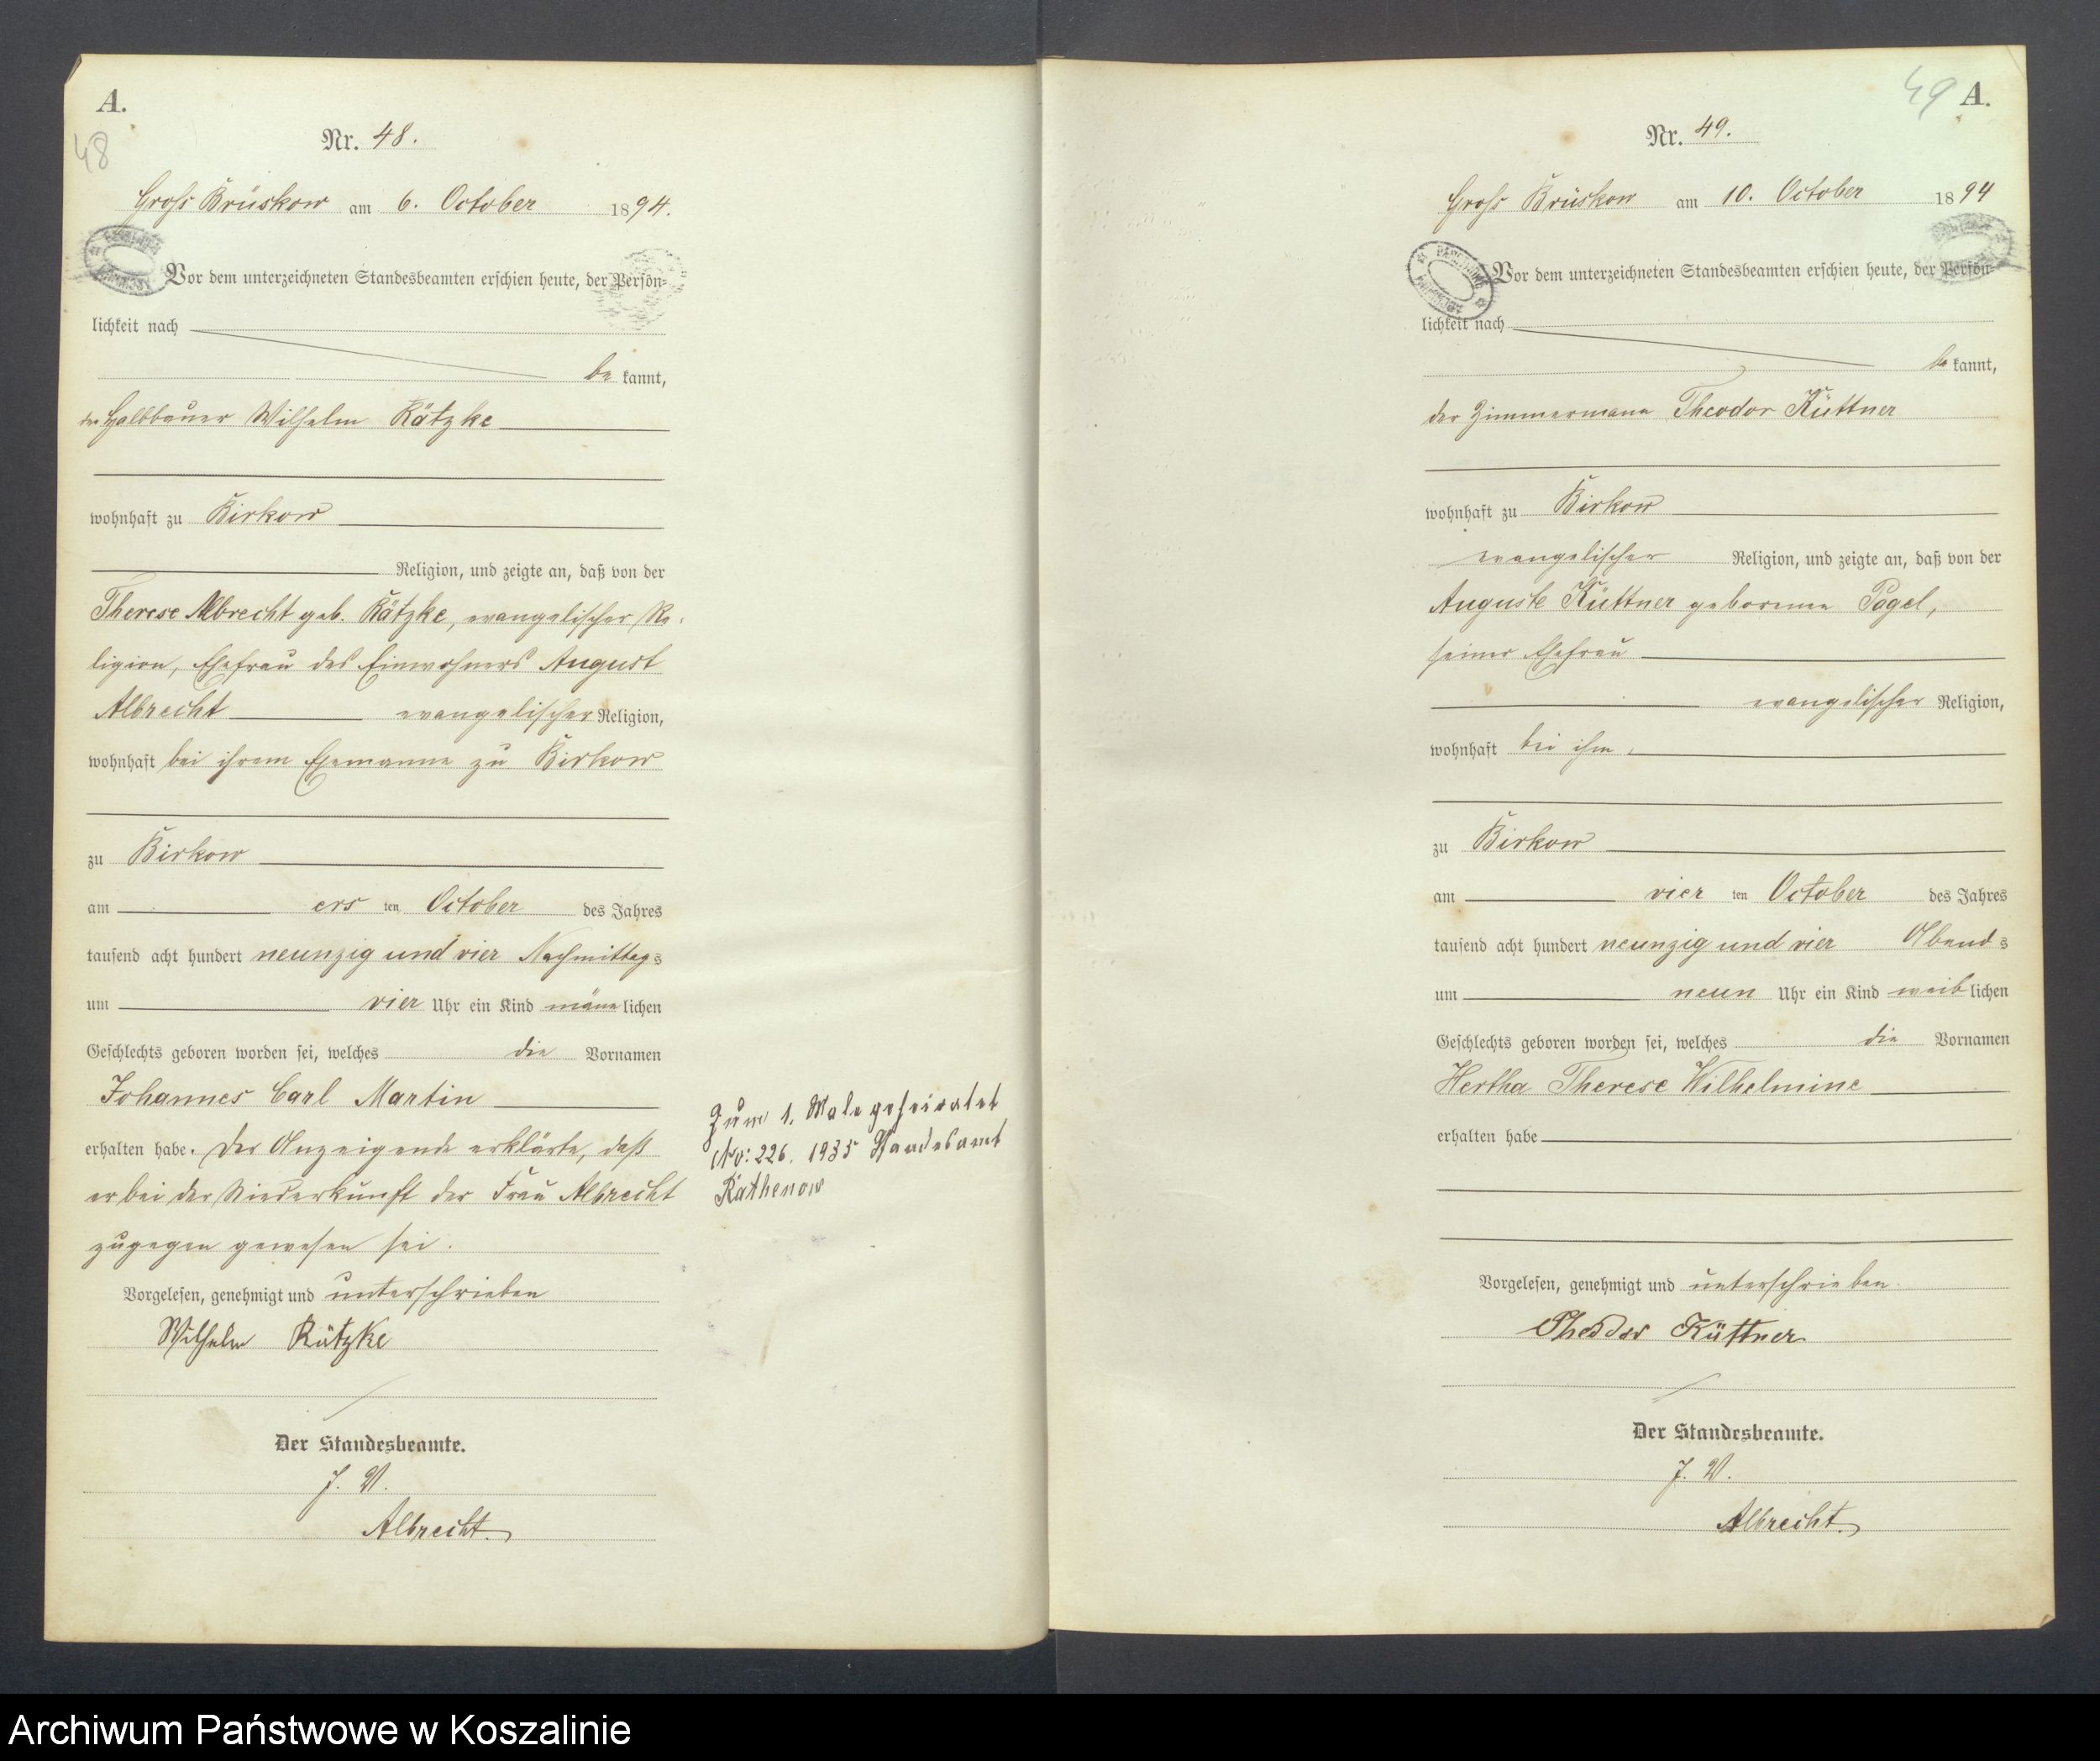 A.
48
Nr. 48.
Gross Brüskow am 6. October 1894.
Vor dem unterzeichneten Standesbeamten erschien heute, der Persön-
lichkeit nach
be kannt,
der Halbbauer Wilhelm Rätzke
wohnhaft zu Birkow
Religion, und zeigte an, daß von der
Therese Albrecht geb. Rätzke, evangelischer Re-
ligion, Ehefrau des Einwohners August
Albrecht evangelischer Religion,
wohnhaft bei ihrem Ehemanne zu Birkow
zu Birkow
am ers ten October des Jahres
tausend acht hundert neunzig und vier Nachmittag s
um vier Uhr ein Kind männ lichen
Geschlechts geboren worden sei, welches die Vornamen
Johannes Carl Martin
erhalten habe. Der Anzeigende erklärte, daß
er bei der Niederkunft der Frau Albrecht
zugegen gewesen sei.
Vorgelesen, genehmigt und unterschrieben
Wilhelm Rätzke
Der Standesbeamte.
J. V.
Albrecht.
Zum 1. Male geheiratet
No: 226. 1935 Standesamt
Rathenow
49 A.
Nr. 49.
Gross Brüskow am 10. October 1894
Vor dem unterzeichneten Standesbeamten erschien heute, der Persön-
lichkeit nach
be kannt,
der Zimmermann Theodor Küttner
wohnhaft zu Birkow
evangelischer Religion, und zeigte an, daß von der
Auguste Küttner geborene Pagel,
seiner Ehefrau
evangelischer Religion,
wohnhaft bei ihm,
zu Birkow
am vier ten October des Jahres
tausend acht hundert neunzig und vier Abend s
um neun Uhr ein Kind weib lichen
Geschlechts geboren worden sei, welches die Vornamen
Hertha Therese Wilhelmine
erhalten habe
Vorgelesen, genehmigt und unterschrieben.
Theodor Küttner
Der Standesbeamte.
J. V.
Albrecht.
Archiwum Państwowe w Koszalinie